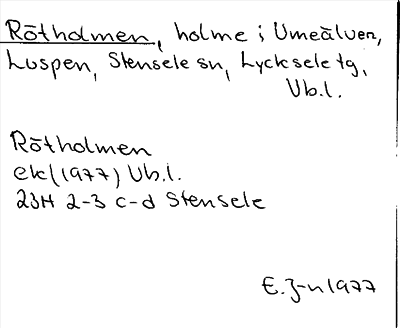 Rötholmen, holme i Umeälven,
Luspen, Stensele sn, Lycksele tg,
Vb.l.
Rötholmen
ek(1977) Vb.l.
23H 2-3 c-d Stensele
E.J-n 1977